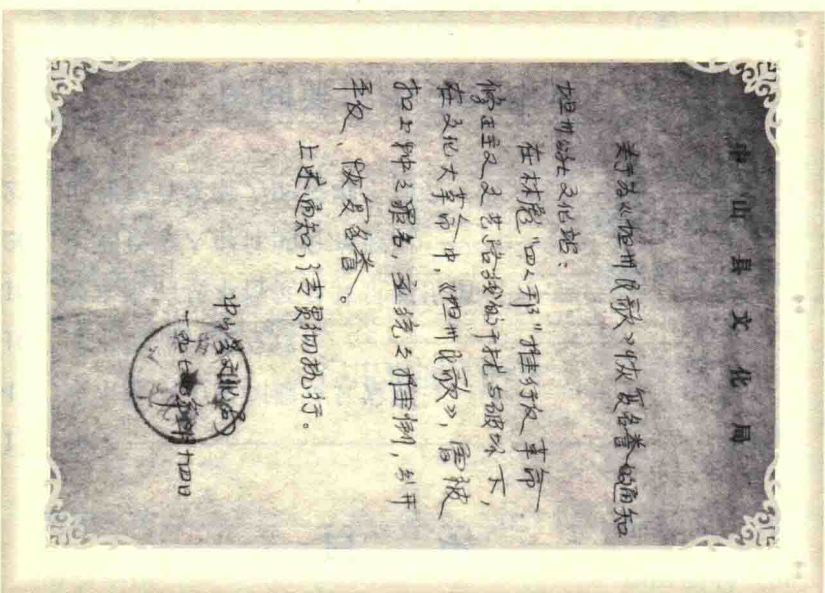 中山县文化局
关于为《坦州民歌》恢复名誉的通知
坦州公社文化站：
在林彪“四人邦”推行反革命
修正主义文艺路线的干扰与破坏下，
在文化大革命中，《坦州民歌》，曾被
扣上种种罪名，应统统推倒，公开
平反，恢复名誉。
上述通知，请贯彻执行。
中山县文化局
一九七